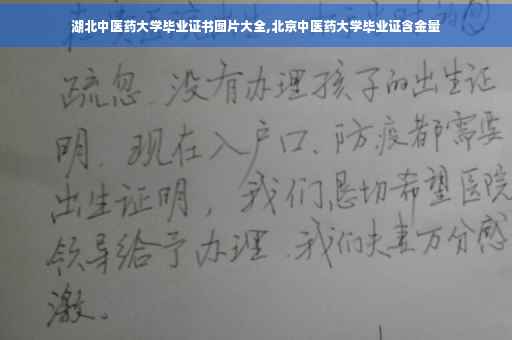 湖北中医药大学毕业证书图片大全,北京中医药大学毕业证含金量
疏忽、没有办理孩子的出生证
明、现在入户口、防疫都需要
出生证明，我们恳切希望医院
领导给予办理、我们夫妻万分感
激。